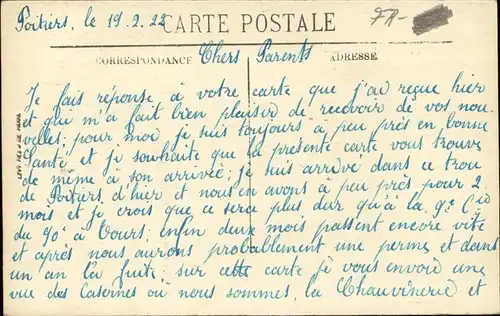 Poitiers, le 19.2.22
CARTE POSTALE
FR-
CORRESPONDANCE
Chers Parents
ADRESSE
Je fais réponse à votre carte que j'ai reçue hier
et que m'a fait bien plaisir de recevoir de vos nou
velles; pour moi je suis toujours à peu près en bonne
Santé et je souhaite que la présente carte vous trouve
de même à son arrivée; je suis arrivé dans ce trou
de Poitiers d'hier et nous en avons à peu près pour 2
mois et je crois que ce sera plus dur qu'à la 9e Cie
du 90e à Tours; enfin deux mois passent encore vite
et après nous aurons probablement une perme et dans
un an la fuite; sur cette carte je vous envoie une
vue des Casernes où nous sommes, la Chauvinerie et